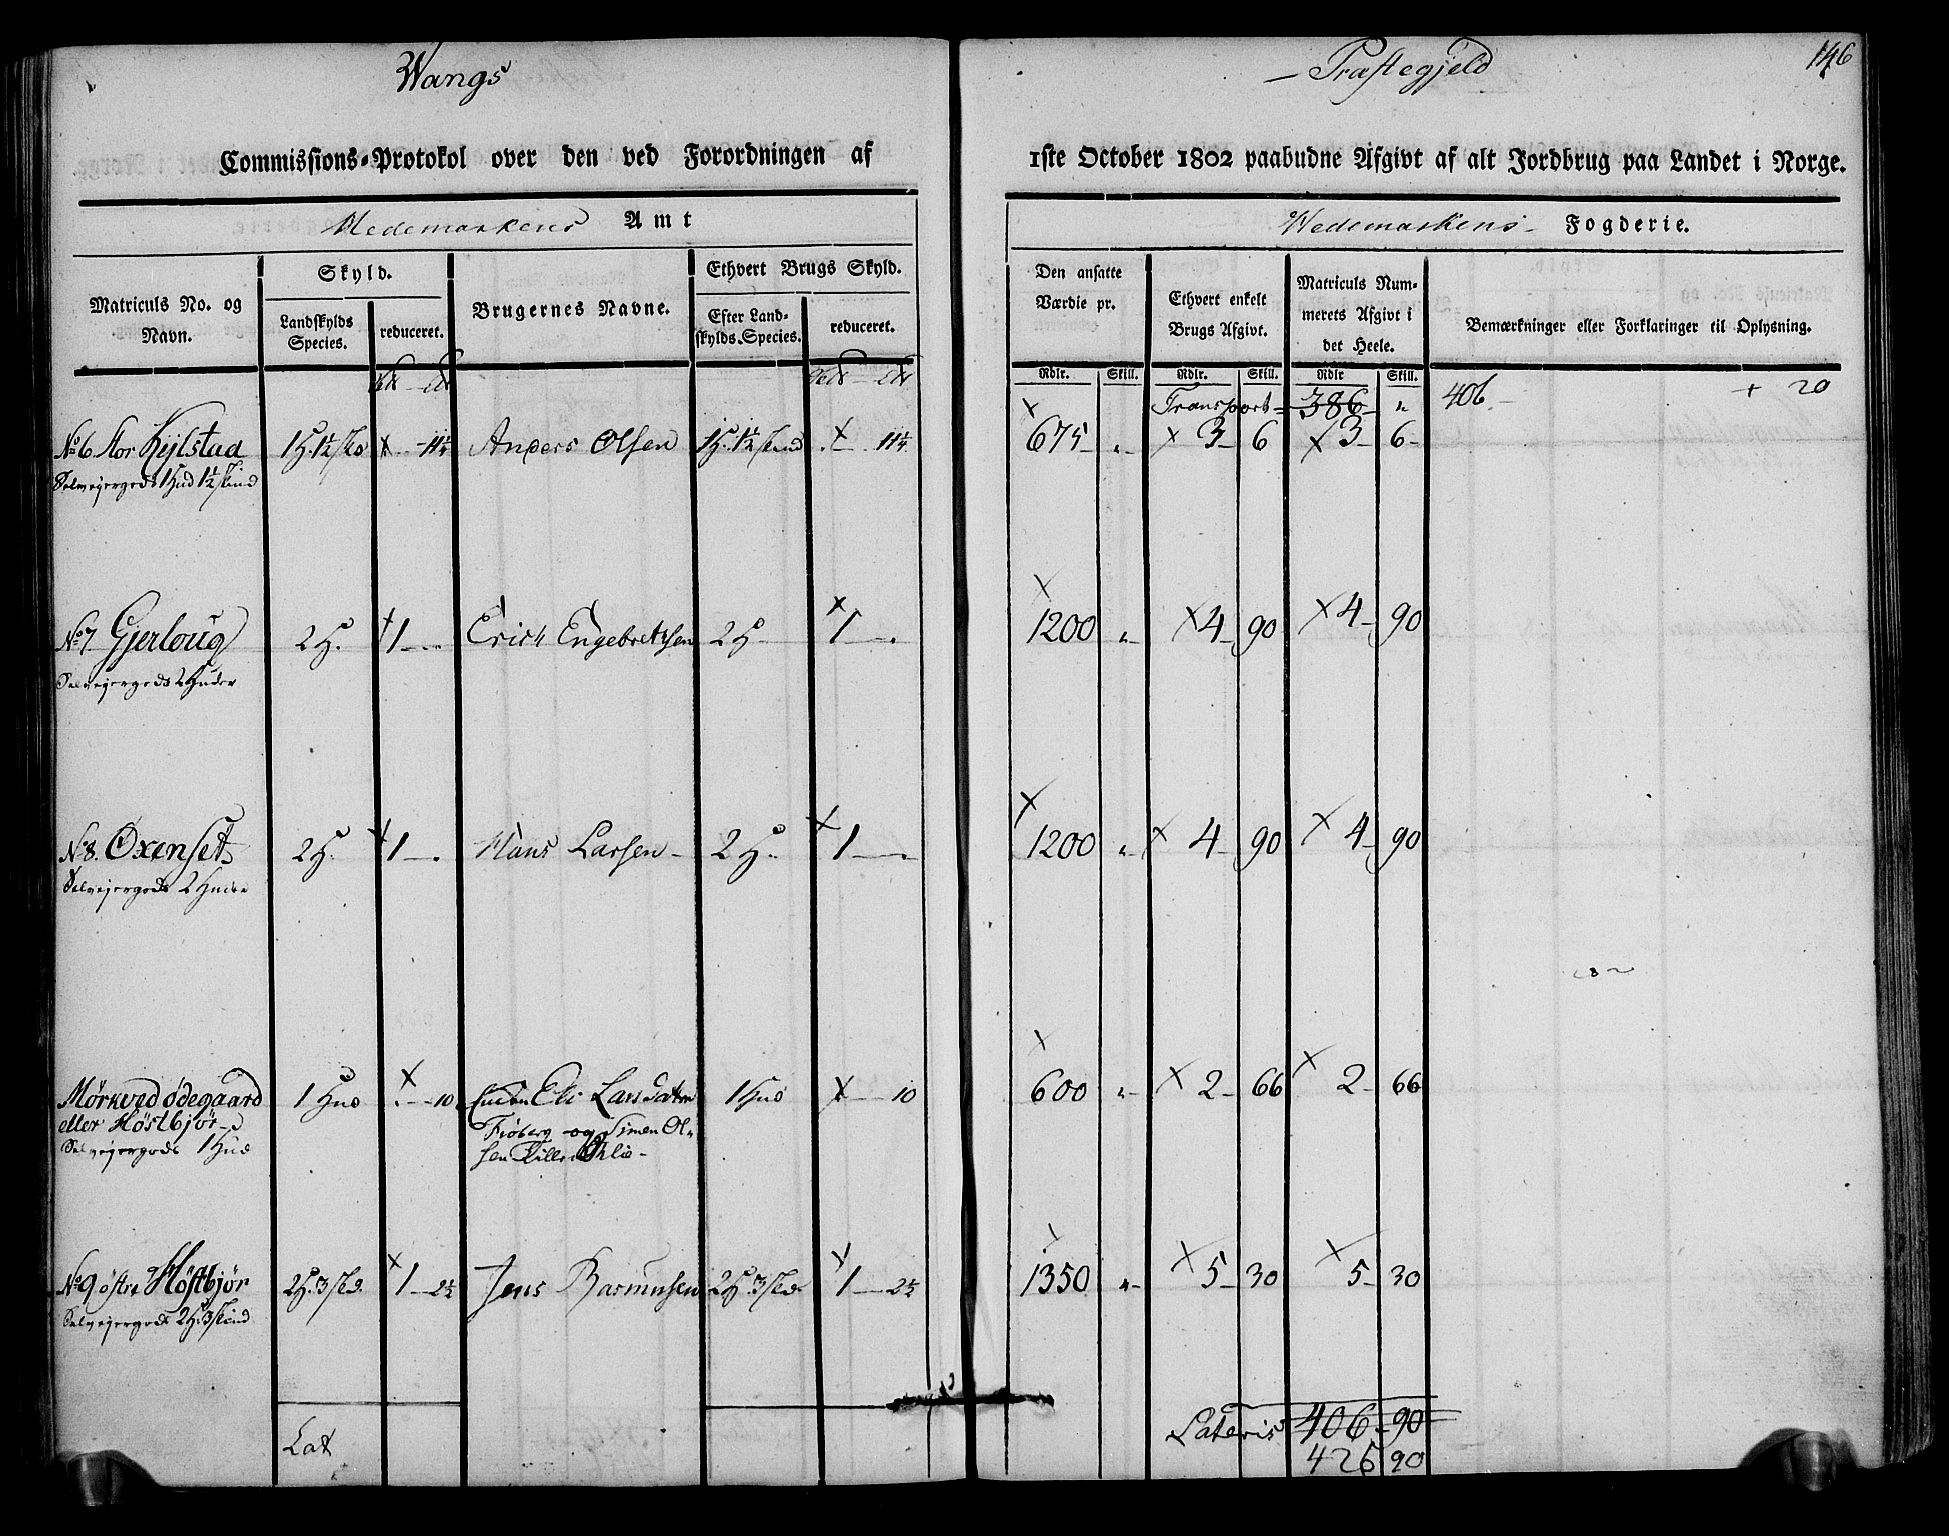 Wangs
Præstegjeld
146
Commissions-Protokol over den ved Forordningen af
1ste October 1802 paabudne Afgivt af alt Jordbrug paa Landet i Norge.
Hedemarkens Amt
Hedemarkens Fogderie.
Matriculs No. og Navn.
Skyld.
Landskylds Species.
reduceret.
Brugernes Navne.
Ethvert Brugs Skyld.
Efter Landskylds Species.
reduceret.
Den ansatte Værdie pr.
Ethvert enkelt Brugs Afgivt.
Matriculs Nummerets Afgivt i det Heele.
Bemærkninger eller Forklaringer til Oplysning.
Rdlr. Skill. Rdlr. Skill. Rdlr Skill.
Transport 386 „ 406 + 20
No 6 Stor Kjlstad 1 H. 1½ Skd x 11¼ Anders Olsen 1 H. 1½ skind x 11¼ x 675 „ x 3 6 x 3 6
Selvejergods 1 Hud 1½ skind
No 7 Gjerloug 2 H. x 1 Erich Engebretsen 2 H x 1 x 1200 „ x 4 90 x 4 90
Selvejergods 2 Huder
No 8. Oxenset 2 H. x 1 Hans Larsen 2 H. x 1 x 1200 „ x 4 90 x 4 90
Selvejergods 2 Huder
Mørkved ødegaard 1 Hud x 10 Enken Eli Larsdatter 1 Hud x 10 x 600 „ x 2 66 x 2 66
eller Høstbjør
Frøberg og Simen Olsen
Selvejergods 1 Hud
No 9 østre Høstbjør 2 H. 3 skd. x 1 2½ Jens Rasmusen 2 H. 3 skd x 1 2½ x 1350 „ x 5 30 x 5 30
Selvejergods 2 H. 3 skind
Lat
Lateris 406 90
426 90